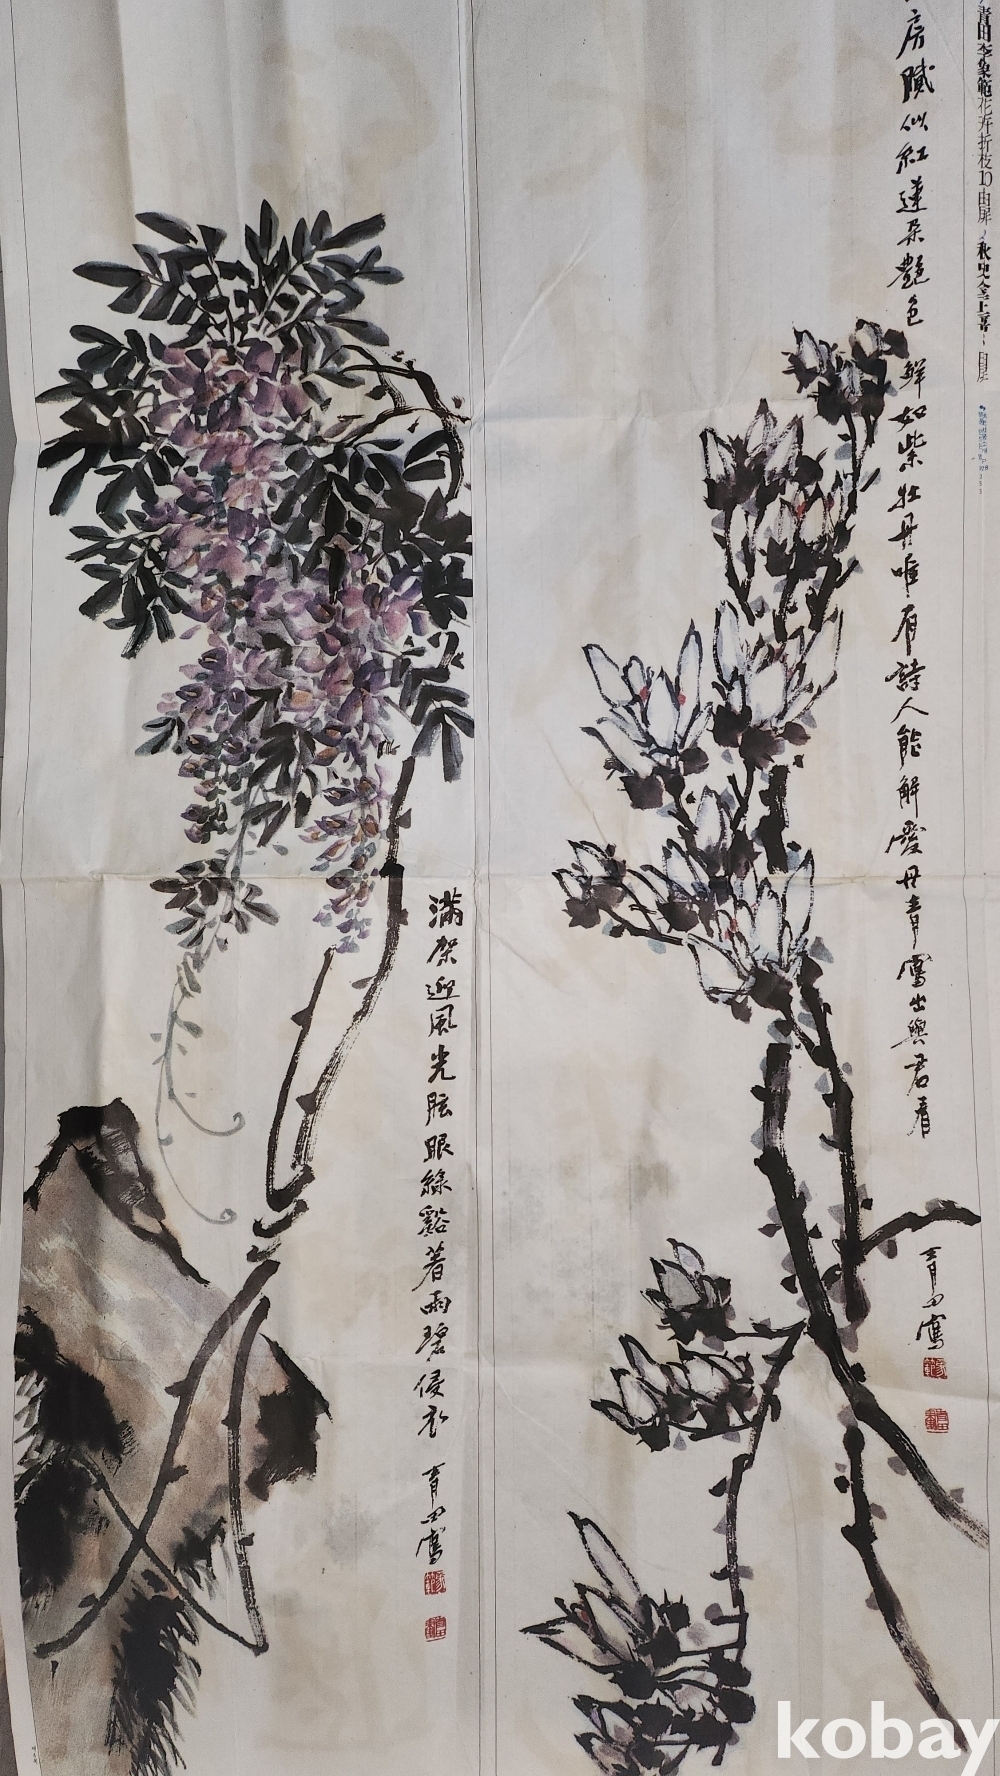 青田李象範花卉折枝10曲屏
房膩似紅蓮朶艶色
鮮如紫牡丹唯有詩人能解愛丹青寫出與君看
青田寫
滿架迎風光眩眼綠谿著雨碧侵衣
青田寫
kobay